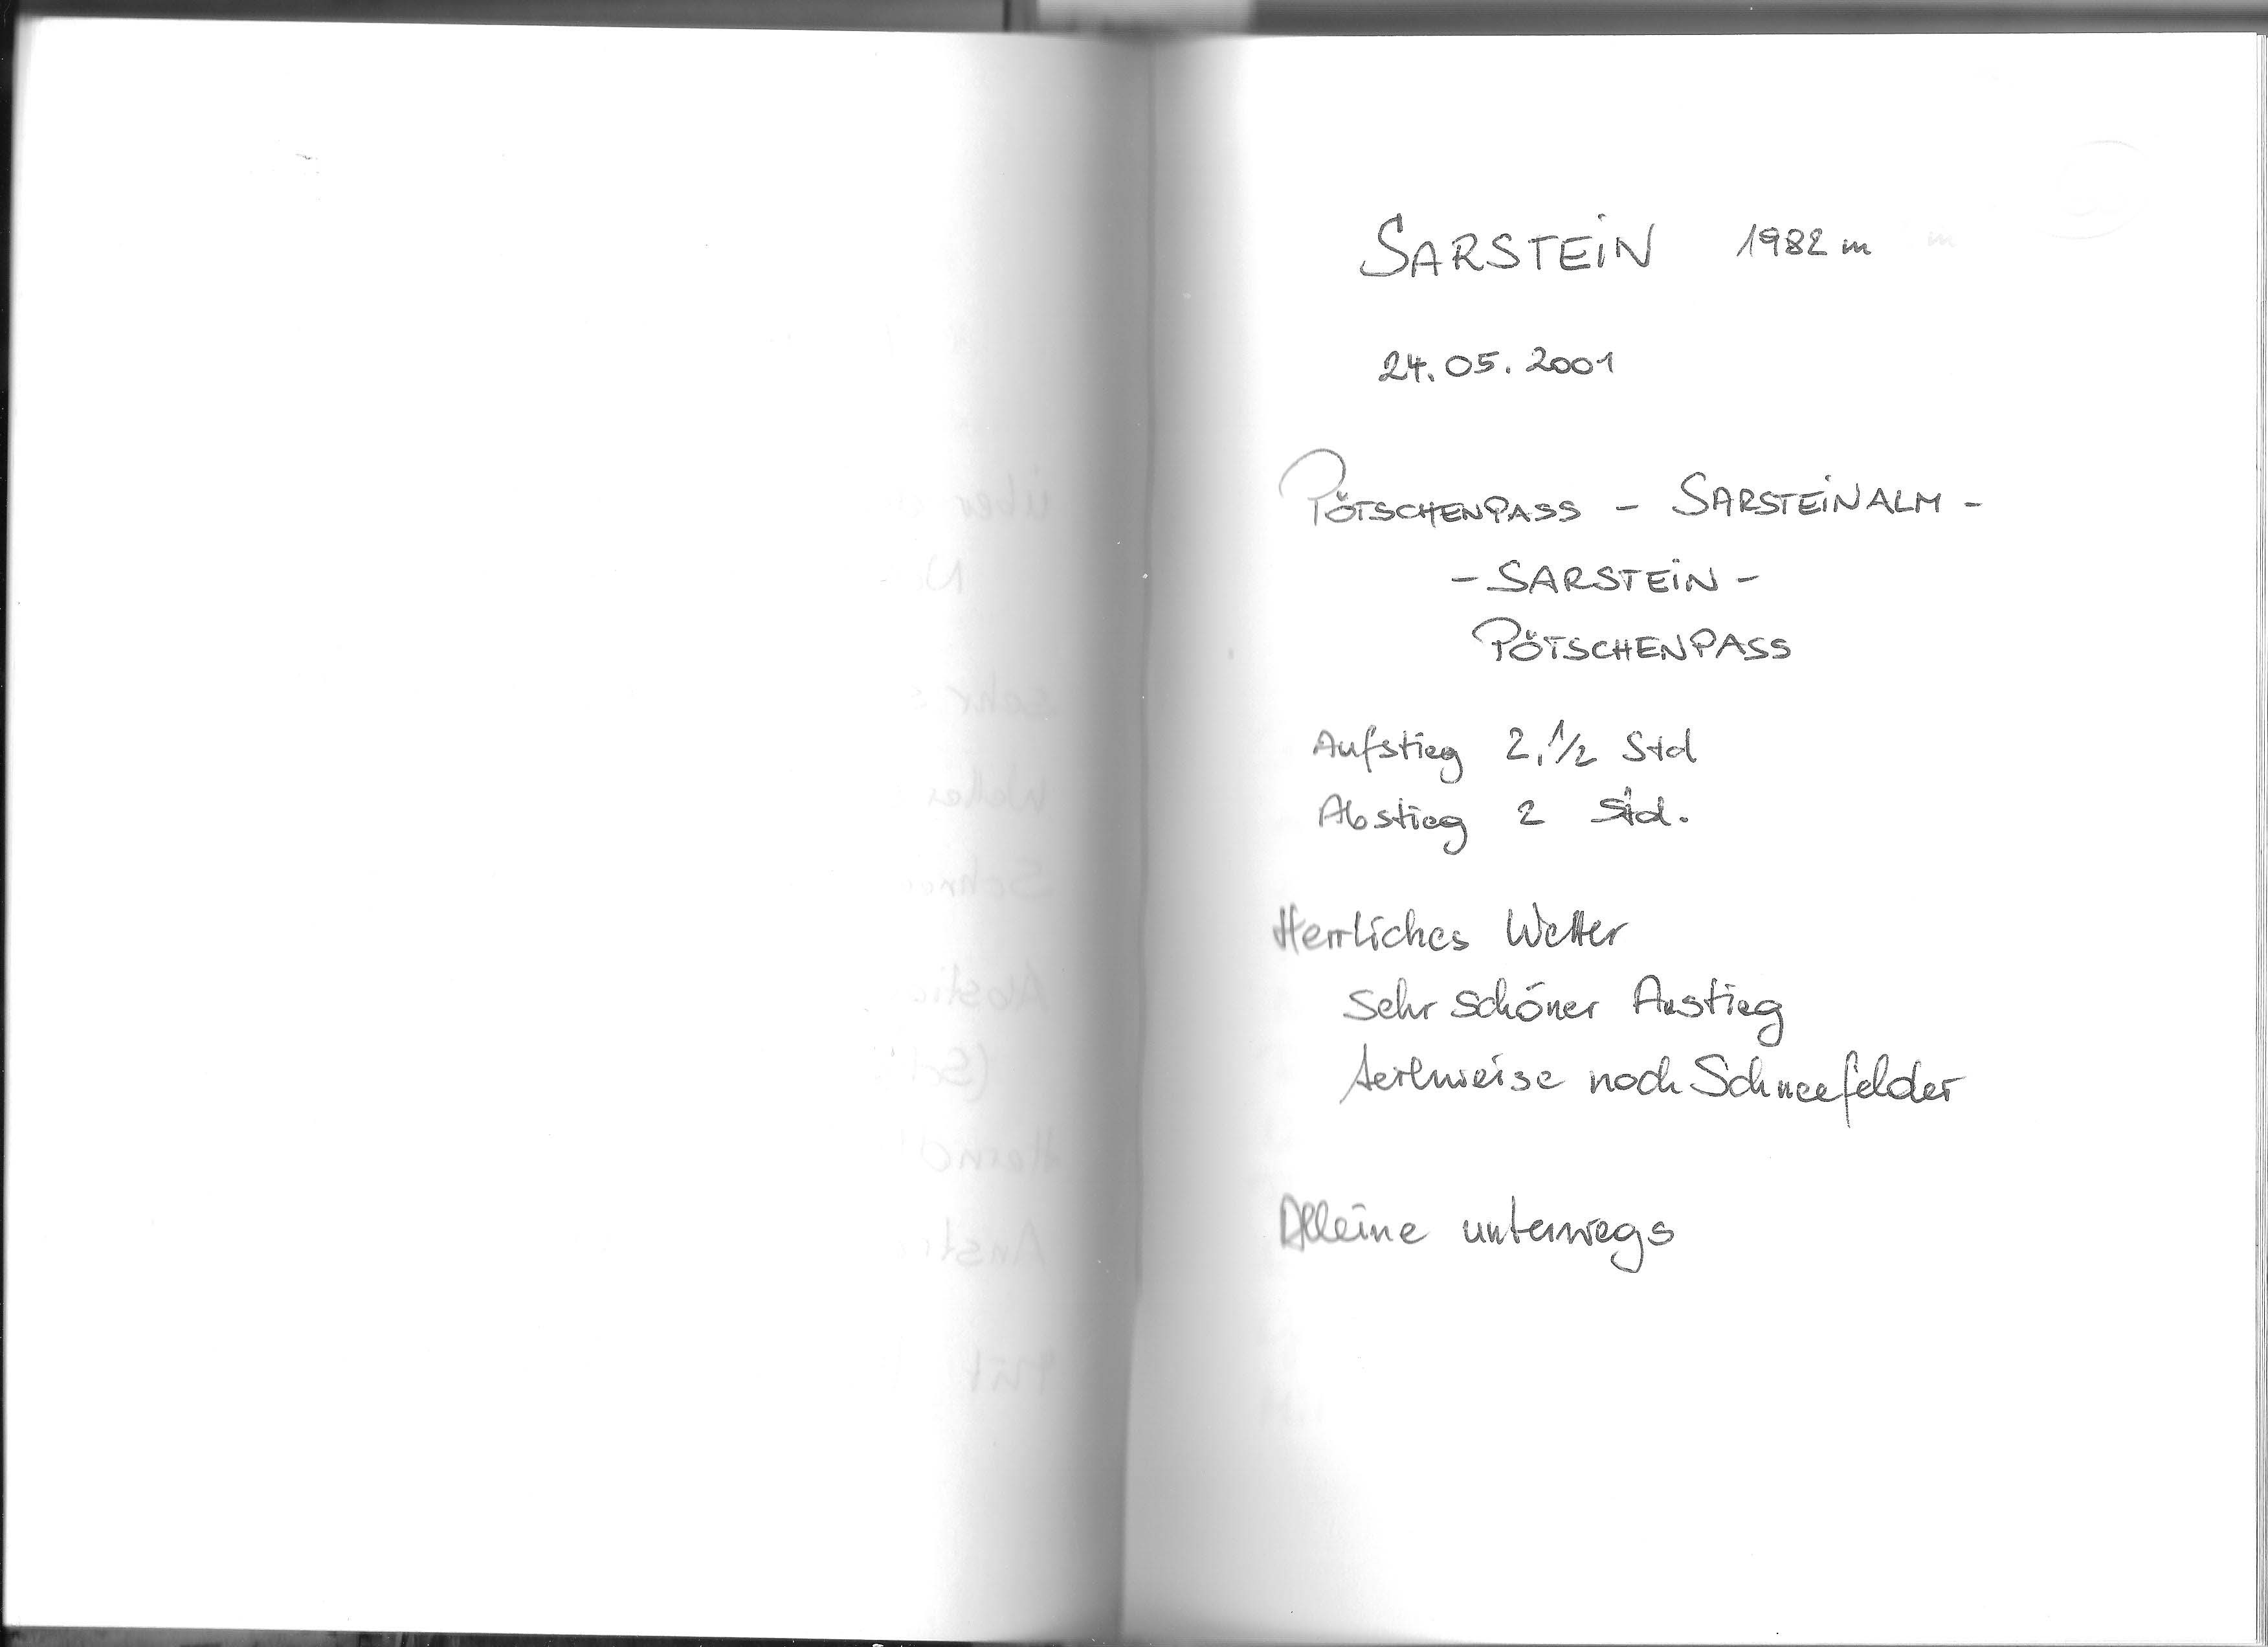 SARSTEIN 1982 m
24.05.2001
PÖTSCHENPASS – SARSTEINALM –
– SARSTEIN –
PÖTSCHENPASS
Aufstieg 2,1/2 Std
Abstieg 2 Std.
Herrliches Wetter
Sehr schöner Anstieg
teilweise noch Schneefelder
Alleine unterwegs